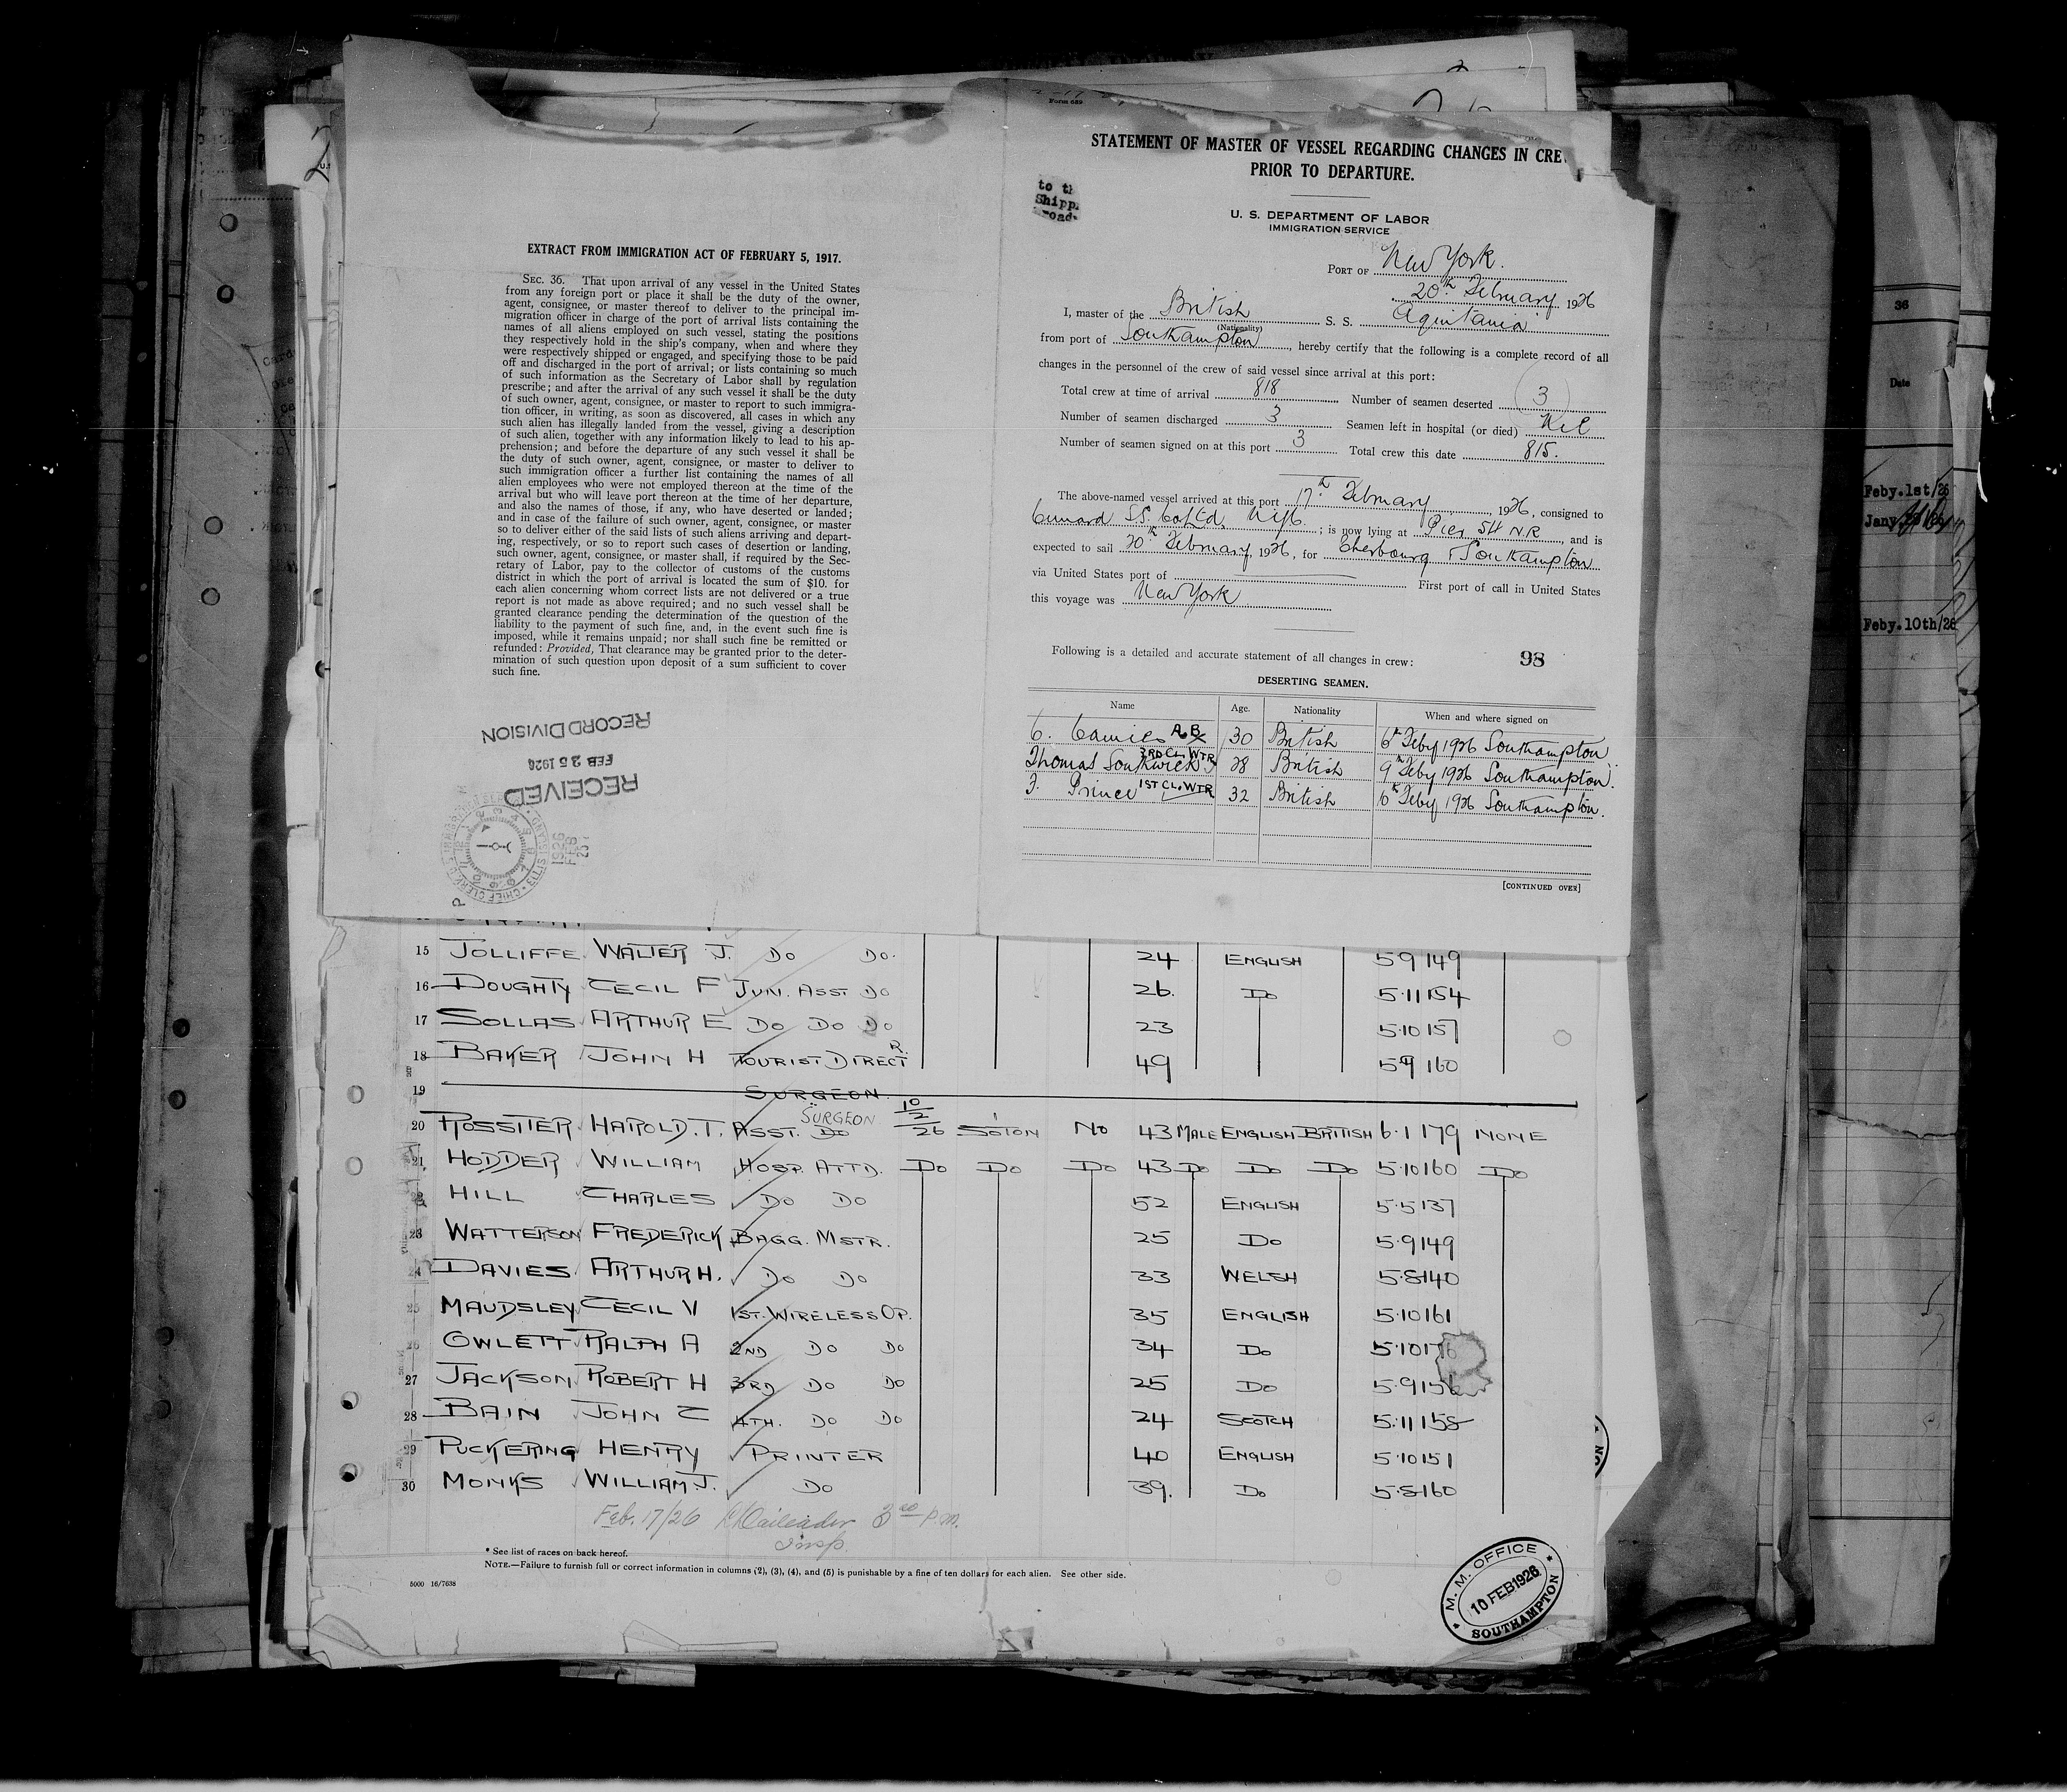 Form 689
STATEMENT OF MASTER OF VESSEL REGARDING CHANGES IN CRE
PRIOR TO DEPARTURE.
to th
Shipp
road
U. S. DEPARTMENT OF LABOR
IMMIGRATION SERVICE
PORT OF New York.
20th February 1926
I, master of the British S. S. Aquitania
(Nationality)
from port of Southampton, hereby certify that the following is a complete record of all
changes in the personnel of the crew of said vessel since arrival at this port:
Total crew at time of arrival 818 Number of seamen deserted (3)
Number of seamen discharged 3 Seamen left in hospital (or died) Nil
Number of seamen signed on at this port 3 Total crew this date 815.
The above-named vessel arrived at this port 17th February, 1926, consigned to
Cunard S.S. Co Ltd.; is now lying at Pier 54 N.R., and is
expected to sail 20th February 1926, for Cherbourg & Southampton
via United States port of First port of call in United States
this voyage was New York
Following is a detailed and accurate statement of all changes in crew: 98
DESERTING SEAMEN.
Name Age. Nationality When and where signed on
A.B. 30 British 6th Feby 1926 Southampton
Thomas Southwick 3RD CL. WTR 28 British 9th Feby 1926 Southampton.
F. Prince 1ST CL. WTR 32 British 6th Feby 1926 Southampton.
[CONTINUED OVER]
EXTRACT FROM IMMIGRATION ACT OF FEBRUARY 5, 1917.
SEC. 36. That upon arrival of any vessel in the United States
from any foreign port or place it shall be the duty of the owner,
agent, consignee, or master thereof to deliver to the principal im-
migration officer in charge of the port of arrival lists containing the
names of all aliens employed on such vessel, stating the positions
they respectively hold in the ship's company, when and where they
were respectively shipped or engaged, and specifying those to be paid
off and discharged in the port of arrival; or lists containing so much
of such information as the Secretary of Labor shall by regulation
prescribe; and after the arrival of any such vessel it shall be the duty
of such owner, agent, consignee, or master to report to such immigra-
tion officer, in writing, as soon as discovered, all cases in which any
such alien has illegally landed from the vessel, giving a description
of such alien, together with any information likely to lead to his ap-
prehension; and before the departure of any such vessel it shall be
the duty of such owner, agent, consignee, or master to deliver to
such immigration officer a further list containing the names of all
alien employees who were not employed thereon at the time of the
arrival but who will leave port thereon at the time of her departure,
and also the names of those, if any, who have deserted or landed;
and in case of the failure of such owner, agent, consignee, or master
so to deliver either of the said lists of such aliens arriving and depart-
ing, respectively, or so to report such cases of desertion or landing,
such owner, agent, consignee, or master shall, if required by the Sec-
retary of Labor, pay to the collector of customs of the customs
district in which the port of arrival is located the sum of $10. for
each alien concerning whom correct lists are not delivered or a true
report is not made as above required; and no such vessel shall be
granted clearance pending the determination of the question of the
liability to the payment of such fine, and, in the event such fine is
imposed, while it remains unpaid; nor shall such fine be remitted or
refunded: Provided, That clearance may be granted prior to the deter-
mination of such question upon deposit of a sum sufficient to cover
such fine.
RECEIVED
FEB 25 1926
RECORD DIVISION
1926
FEB
25
36
Date
Feby.1st/26
Feby.10th/26
15 JOLLIFFE WALTER J. DO DO. 24 ENGLISH 5 9 149
16 DOUGHTY CECIL F JUN. ASST DO 26. DO 5·11 154
17 SOLLAS ARTHUR E DO DO DO 23 5·10 157
18 BAKER JOHN H TOURIST DIRECTR. 49 5·9 160
19 SURGEON.
20 ROSSITER HAROLD. T. ASST. DO SURGEON 10/2/26 SOTON NO 43 MALE ENGLISH BRITISH 6·1 179 NONE
21 HODDER WILLIAM HOSP. ATTD. DO DO DO 43 DO DO DO 5·10 160 DO
22 HILL CHARLES DO DO 52 ENGLISH 5·5 137
23 WATTERSON FREDERICK BAGG. MSTR. 25 DO 5·9 149
24 DAVIES ARTHUR H. DO DO 33 WELSH 5·8 140
25 MAUDSLEY CECIL V 1ST. WIRELESS OP. 35 ENGLISH 5·10 161
26 OWLETT RALPH A 2ND DO DO 34 DO 5·10 176
27 JACKSON ROBERT H 3RD DO DO 25 DO 5·9 156
28 BAIN JOHN C 4TH. DO DO 24 SCOTCH 5·11 158
29 PUCKERING HENRY PRINTER 40 ENGLISH 5·10 151
30 MONKS WILLIAM J. DO 39. DO 5·8 160
Feb. 17/26 3 00 P.M.
Insp.
* See list of races on back hereof.
NOTE.—Failure to furnish full or correct information in columns (2), (3), (4), and (5) is punishable by a fine of ten dollars for each alien. See other side.
5000 16/7638
M. M. OFFICE
10 FEB 1926
SOUTHAMPTON